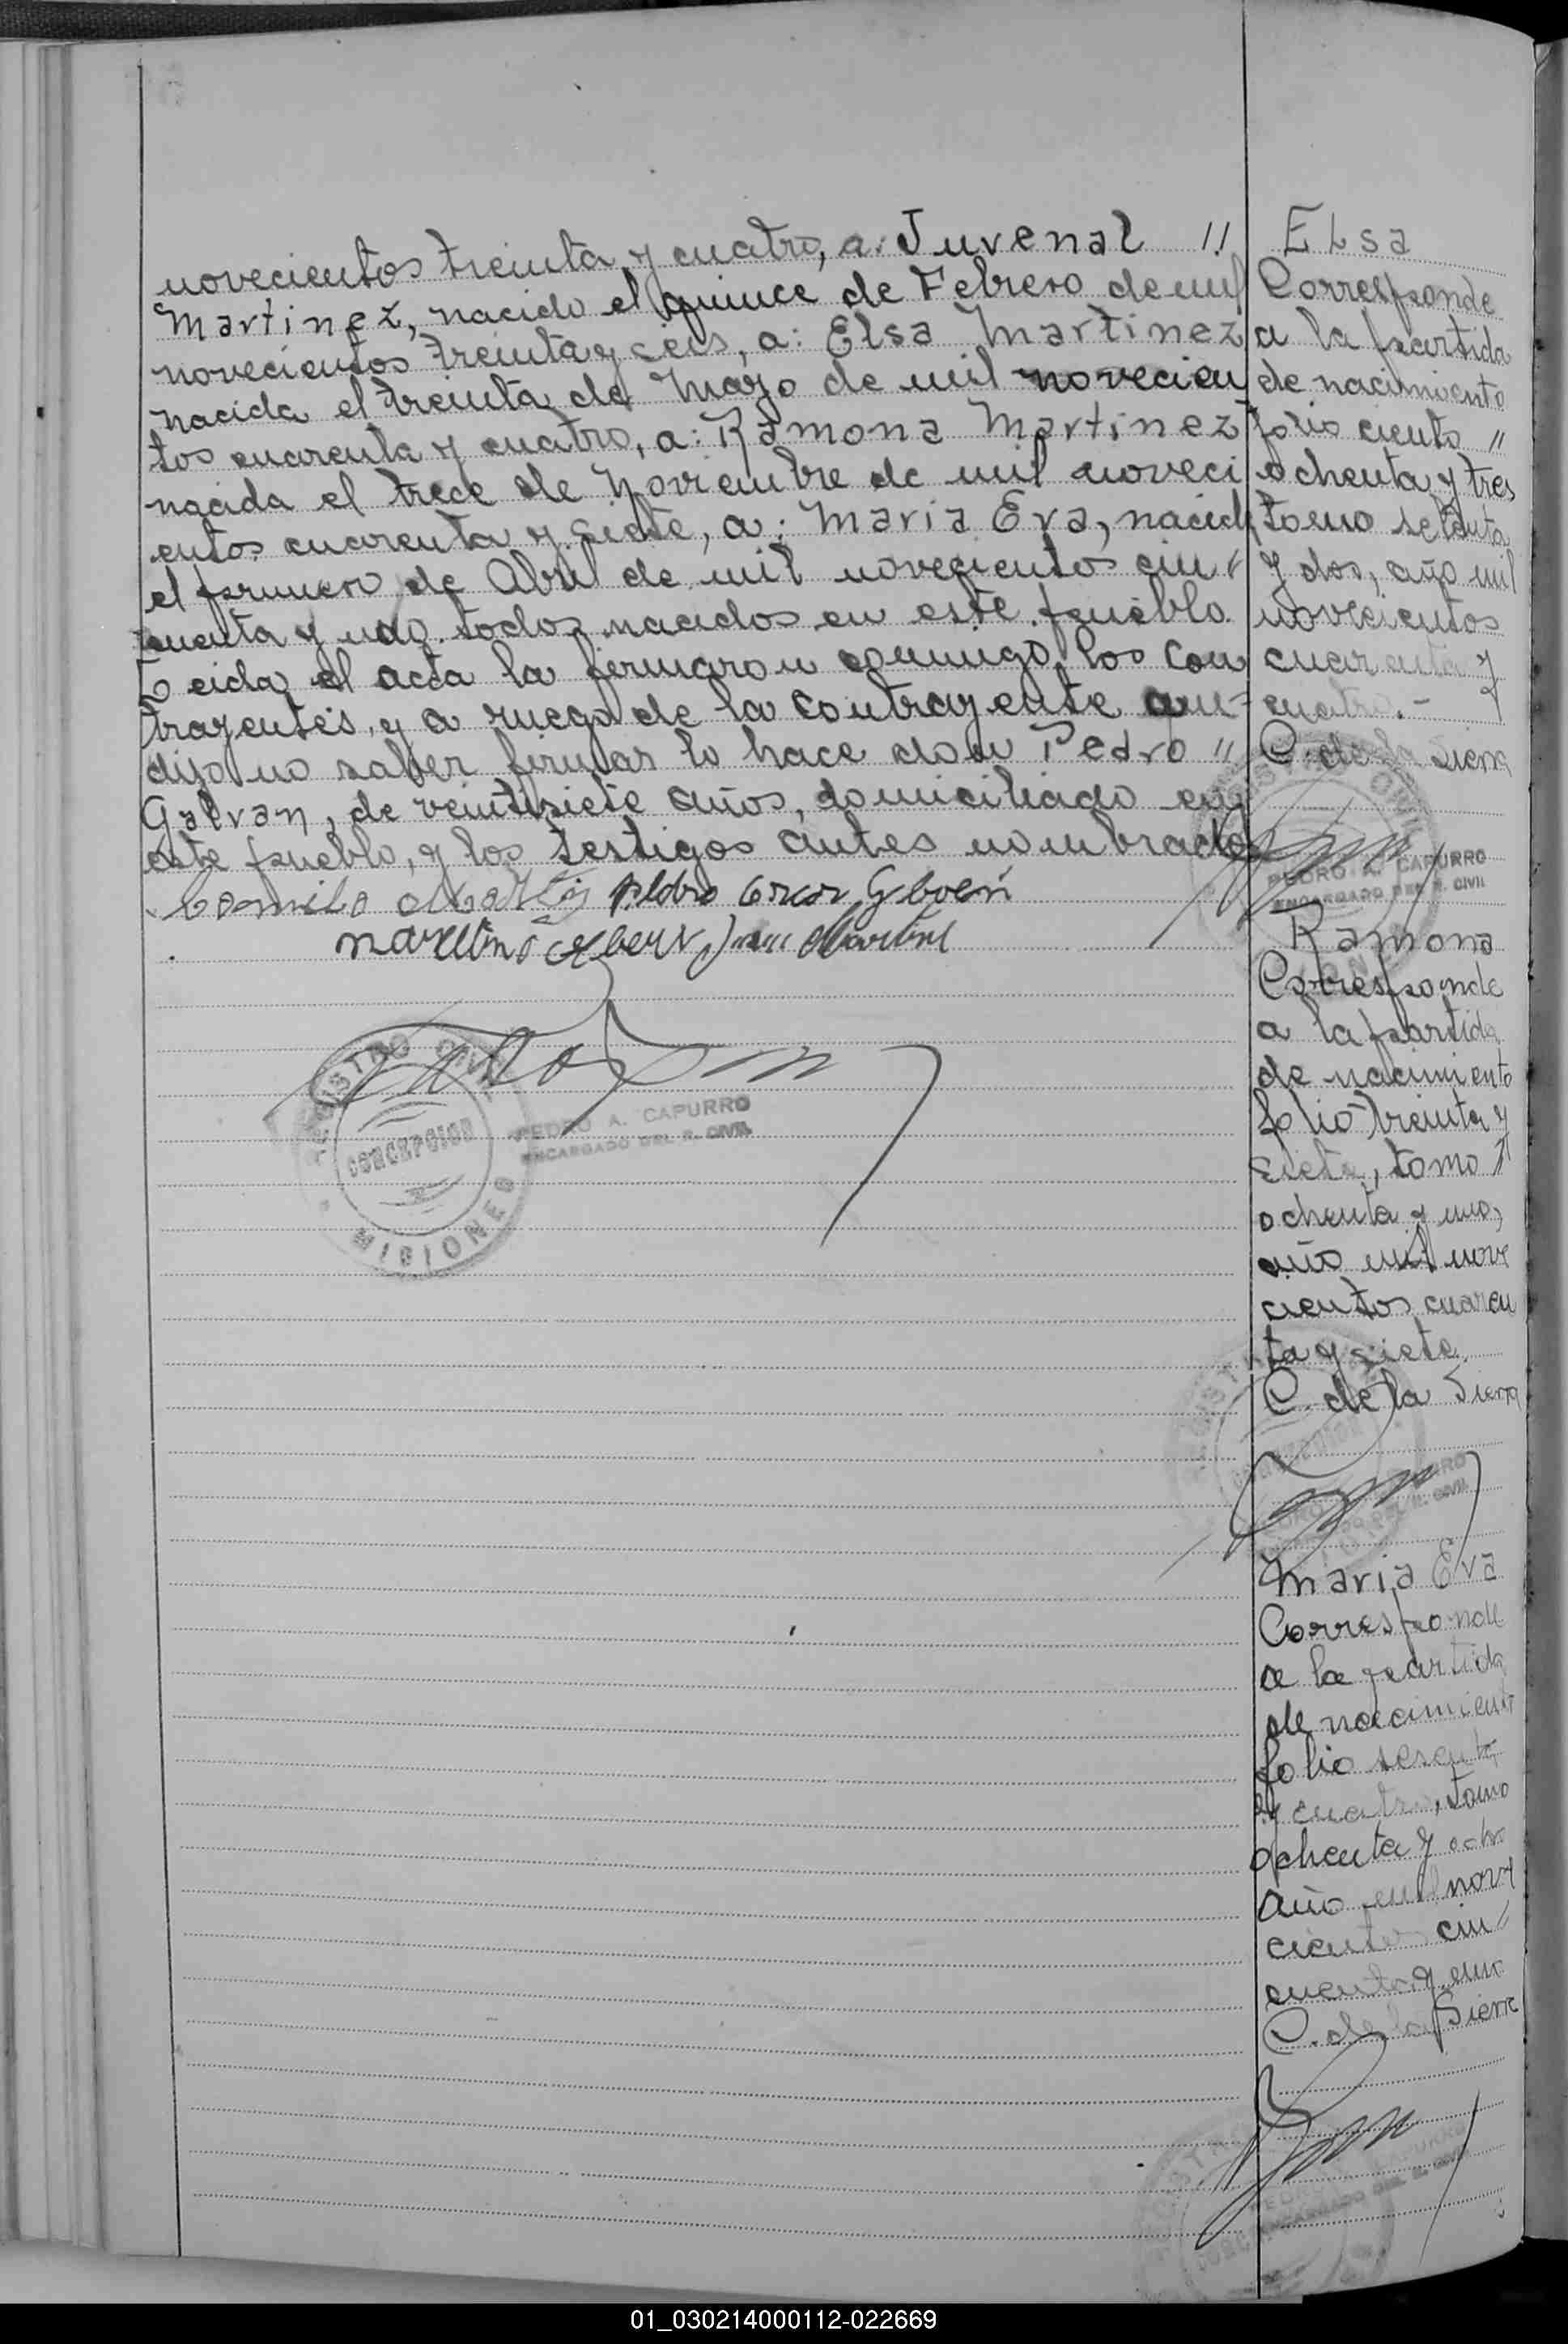 novecientos treinta y cuatro, a: Juvenal "
Martinez, nacido el quince de Febrero de mil
novecientos treinta y seis, a: Elsa Martinez
nacida el treinta de Mayo de mil novecien
tos cuarenta y cuatro, a: Ramona Martinez
nacida el trece de Noviembre de mil noveci
entos cuarenta y siete, a: Maria Eva, nacida
el primero de Abril de mil novecientos cin "
cuenta y uno todos nacidos en este pueblo.
Leida el acta la firmaron conmigo, los con
trayentes, y a ruego de la contrayente que =
dijo no saber firmar lo hace don Pedro "
Galvan, de veintisiete años, domiciliado en
este pueblo, y los testigos antes nombrados
Camilo Pedro
REGISTRO CIVIL
CONCEPCION
MISIONES
PEDRO A. CAPURRO
ENCARGADO DEL R. CIVIL
Elsa
Corresponde
a la partida
de nacimiento
folio ciento "
ochenta y tres
tomo setenta
y dos, año mil
novecientos
cuarenta y
cuatro.-
C. de la Sierra
PEDRO A. CAPURRO
ENCARGADO DEL R. CIVIL
Ramona
Corresponde
a la partida
de nacimiento
folio treinta y
siete, tomo "
ochenta y uno,
año mil nove
cientos cuaren
ta y siete.
C. de la Sierra
Maria Eva
Corresponde
a la partida
de nacimiento
folio sesenta
y cuatro, tomo
ochenta y ocho
año mil nove
cientos cin "
cuenta y uno
C. de la Sierra
ENCARGADO DEL R. CIVIL
01_030214000112-022669